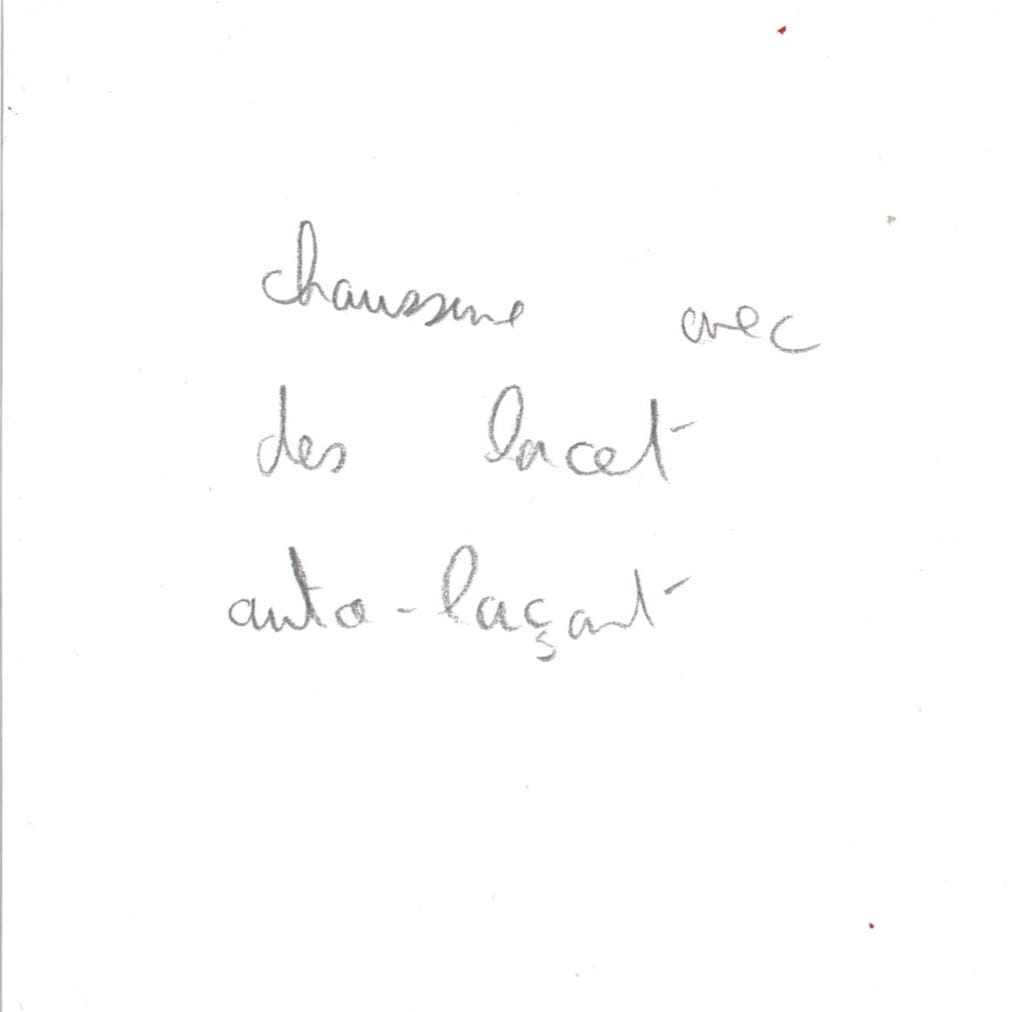 chaussure avec
des lacet
auto-laçant